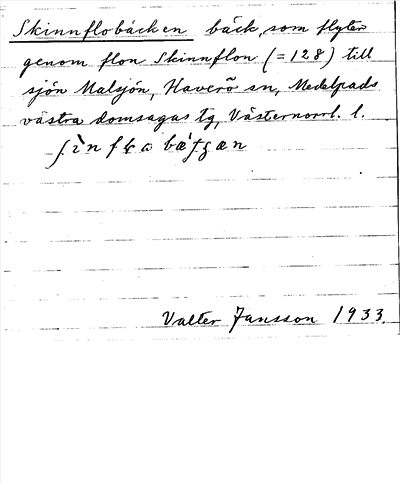 Skinnflobäcken bäck, som flyter
genom flon Skinnflon (=128) till
sjön Malsjön, Haverö sn, Medelpads
västra domsagas tg, Västernorrl. l.
Valter Jansson 1933.